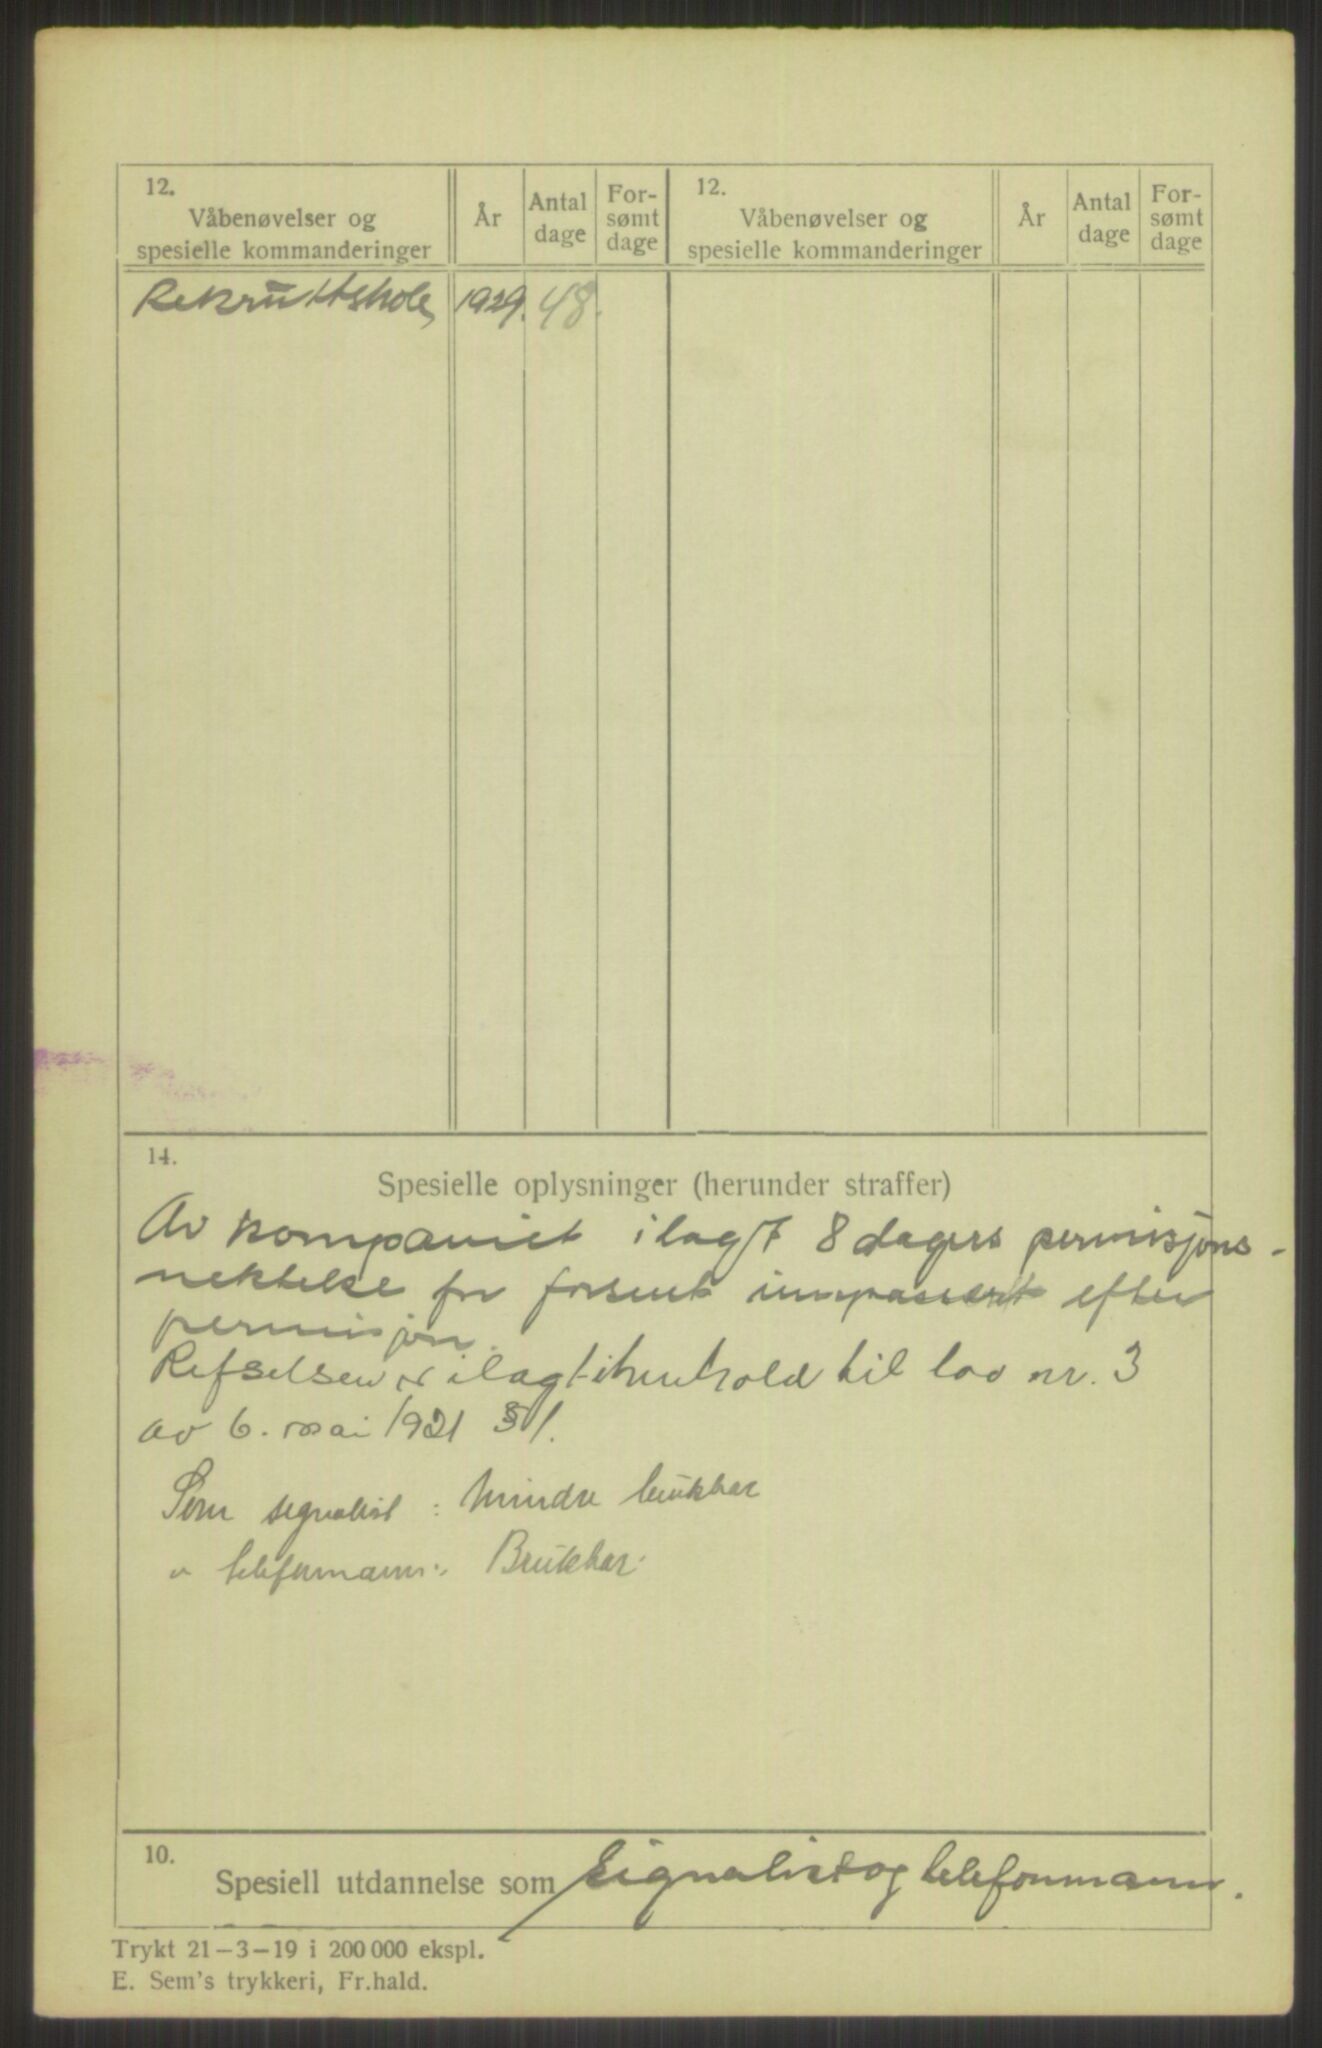 12.
Våbenøvelser og
spesielle kommanderinger
År
Antal
dage
For-
sømt
dage
12.
Våbenøvelser og
spesielle kommanderinger
År
Antal
dage
For-
sømt
dage
Rekruttskole 1929. 48.
14.
Spesielle oplysninger (herunder straffer)
Av kompaniet ilagt 8 dagers permisjons-
nektelse for forsent innpassert efter
permisjon.
Refselsen er ilagt i henhold til lov nr. 3
av 6. mai 1921 § 1.
Som signalist : Mindre brukbar
" telefonmann: Brukbar.
10.
Spesiell utdannelse som signalist og telefonmann.
Trykt 21-3-19 i 200 000 ekspl.
E. Sem's trykkeri, Fr.hald.